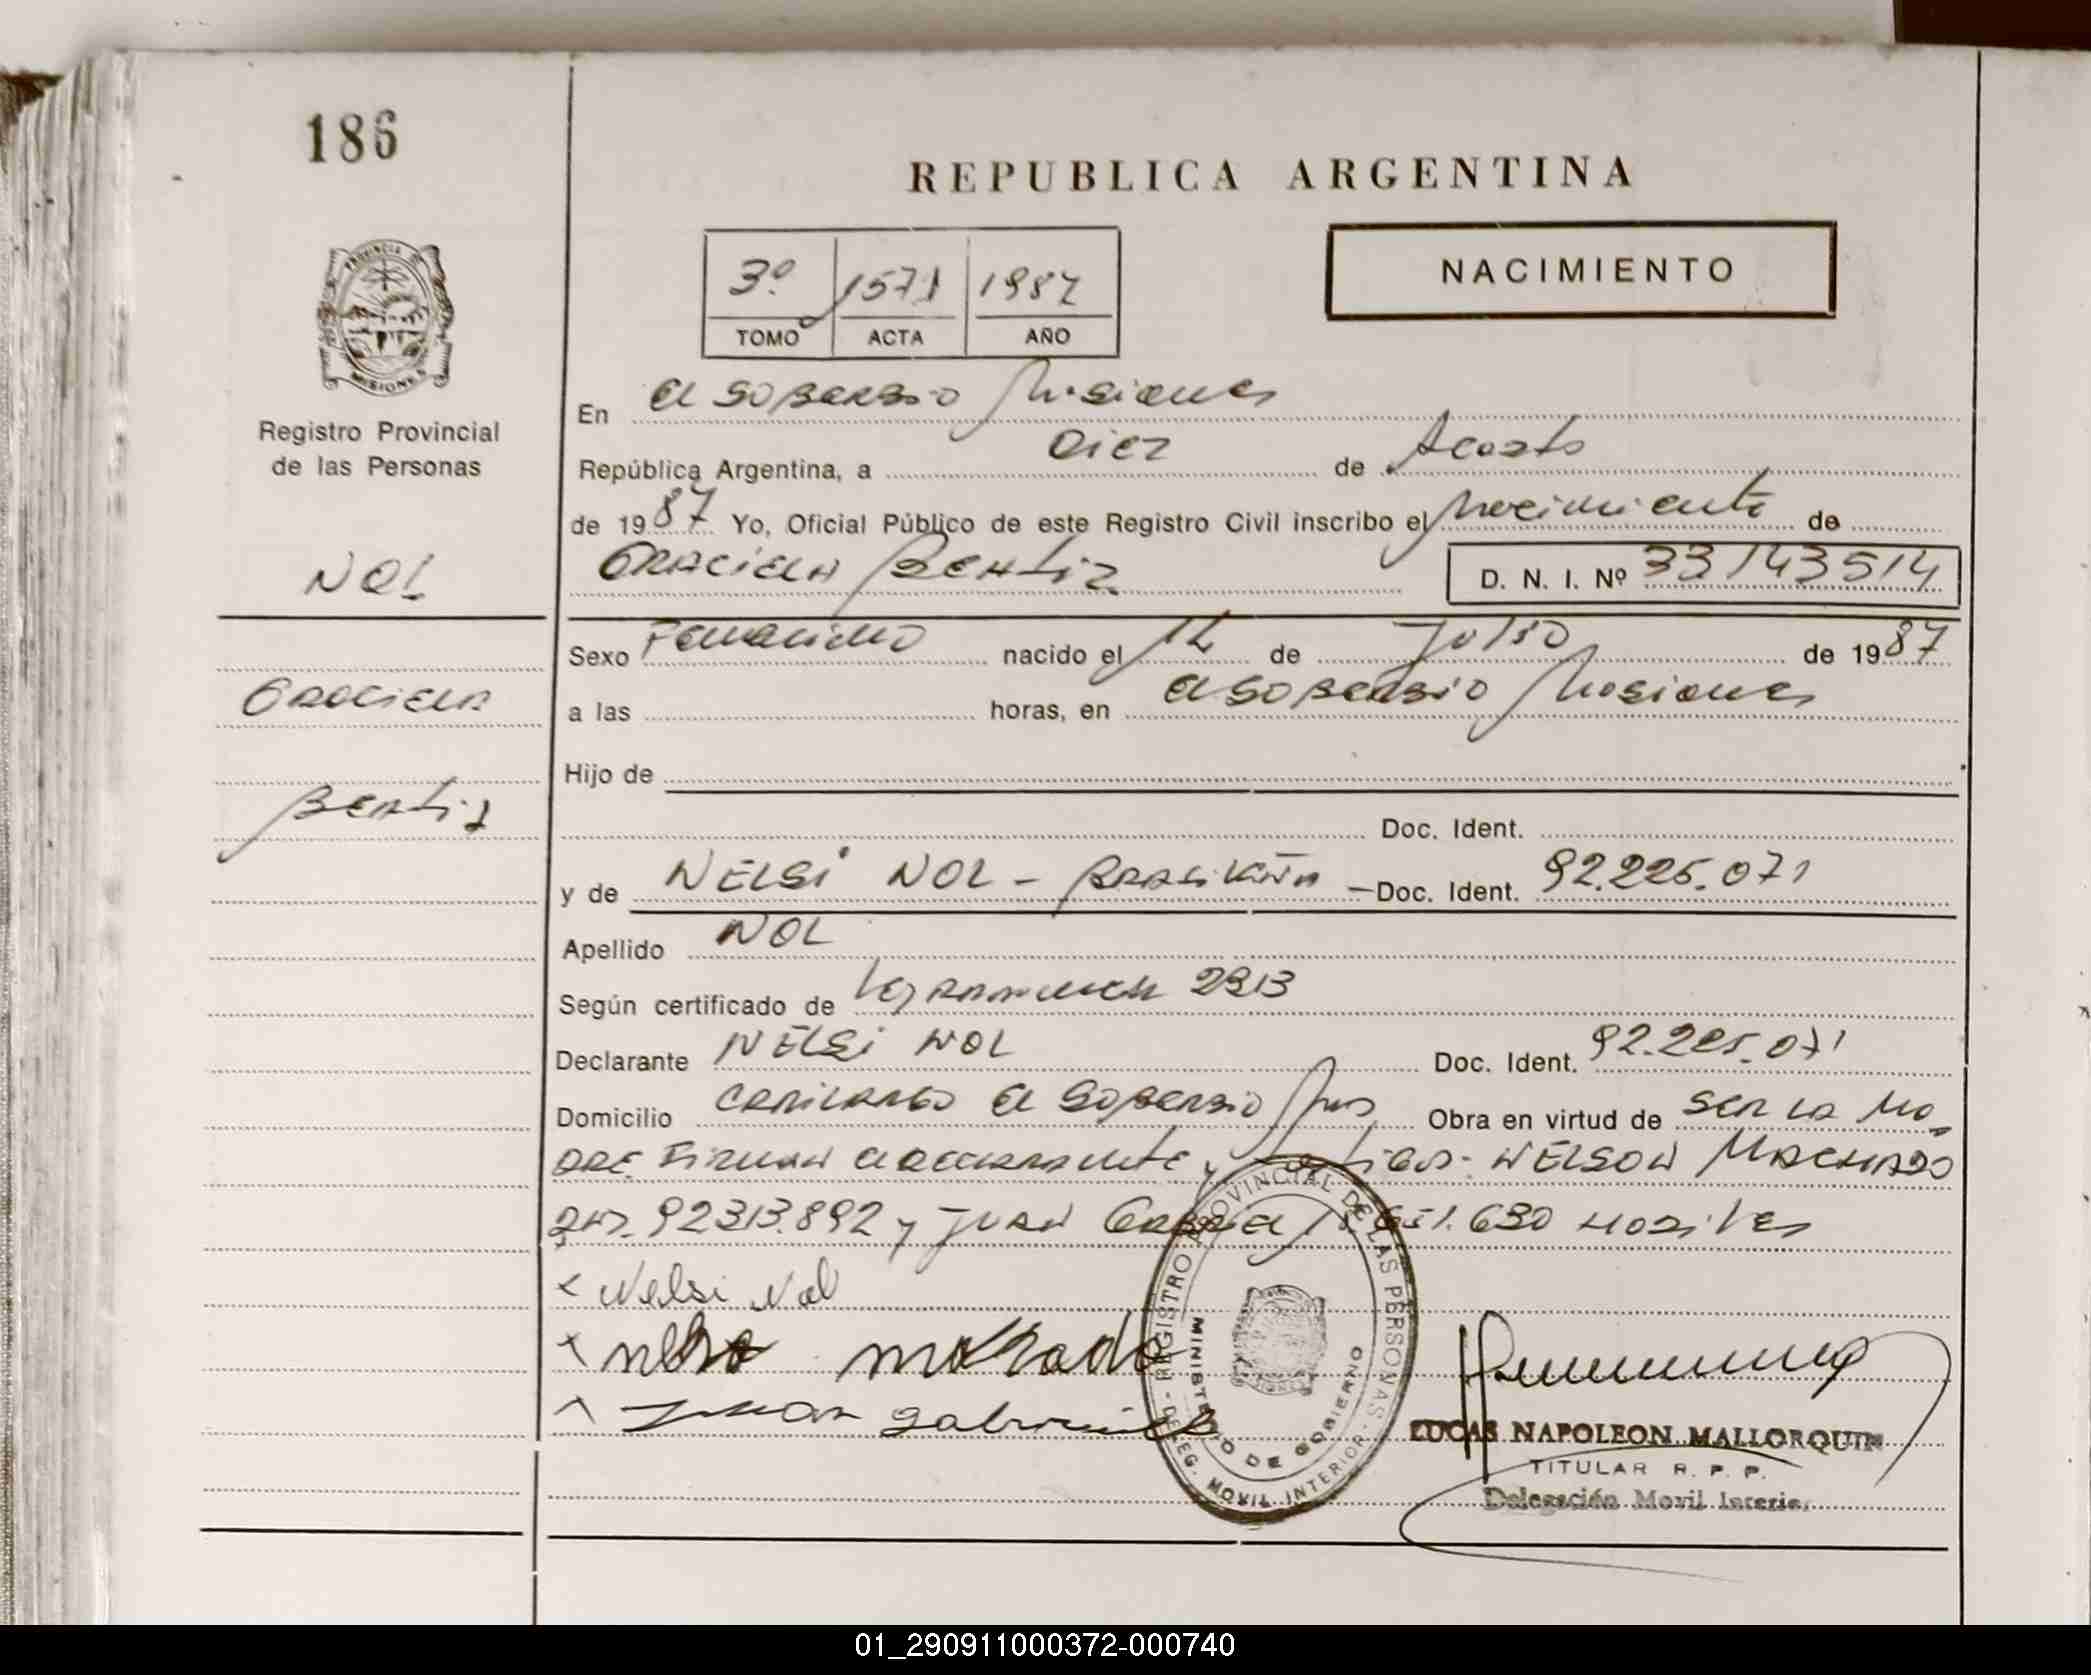 186
REPUBLICA ARGENTINA
3º 1571 1987
TOMO ACTA AÑO
NACIMIENTO
PROVINCIA D MISIONES
Registro Provincial
de las Personas
En El Soberbio Misiones
República Argentina, a Diez de Agosto
de 1987 Yo, Oficial Público de este Registro Civil inscribo el nacimiento de
Graciela Beatiz D. N. I. Nº 33143514
NOL
Sexo Femenino nacido el 12 de Julio de 1987
Graciela
a las horas, en El Soberbio Misiones
Hijo de
Beatiz
Doc. Ident.
y de NELSI NOL - Brasileña - Doc. Ident. 92.225.071
Apellido NOL
Según certificado de 2913
Declarante NELSI NOL Doc. Ident. 92.225.071
Domicilio El Soberbio Mnes Obra en virtud de ser la Ma
dre Firman el declarante y testigos - NELSON Machado
92313.892 y Juan Gabriel .651.630 Hábiles
x Nelsi Nol
x machado
x Juan gabriel
REGISTRO PROVINCIAL DE LAS PERSONAS
MINISTERIO DE GOBIERNO
- DELEG. MOVIL INTERIOR -
LUCAS NAPOLEON MALLORQUIN
TITULAR R. P. P.
Delegación Movil Interior
01_290911000372-000740